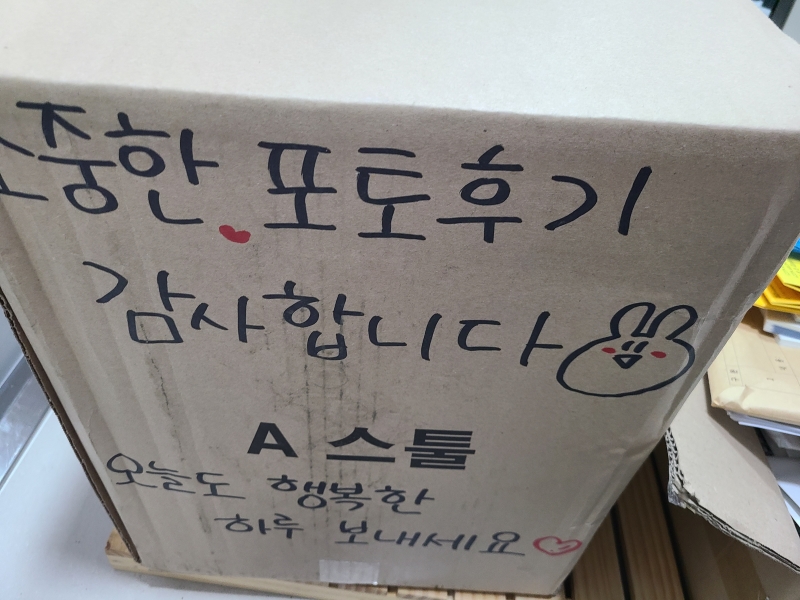 소중한 포토후기
감사합니다
A 스툴
오늘도 행복한
하루 보내세요